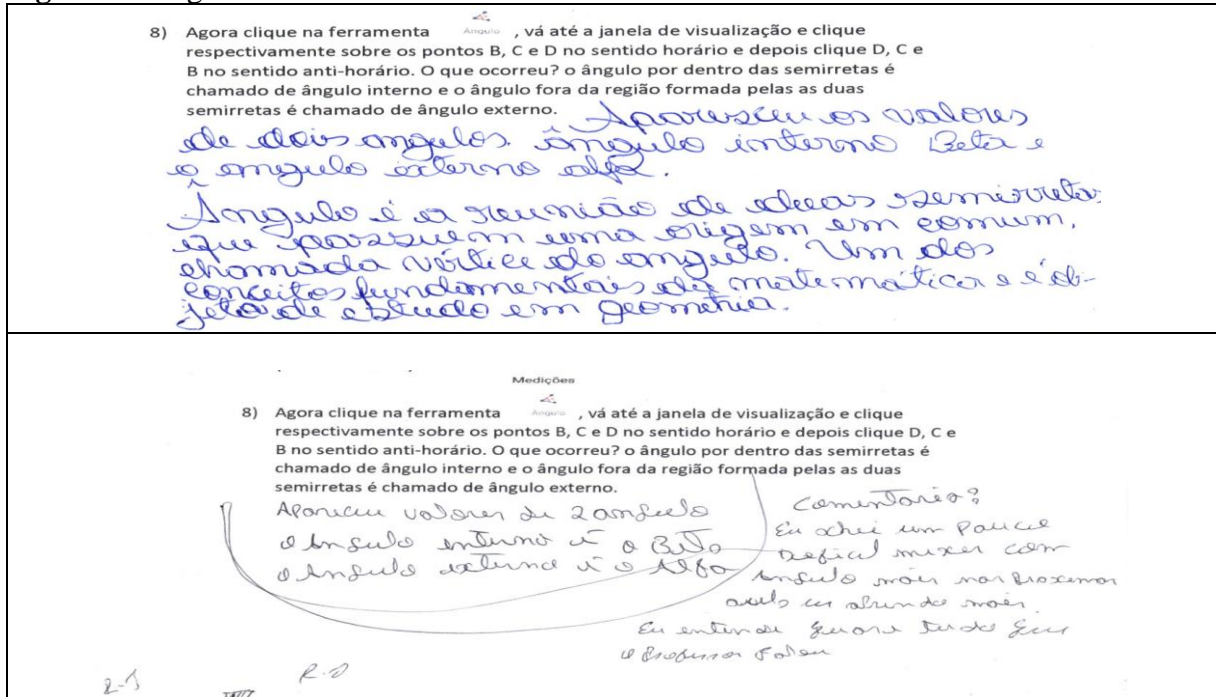 8) Agora clique na ferramenta Ângulo , vá até a janela de visualização e clique
respectivamente sobre os pontos B, C e D no sentido horário e depois clique D, C e
B no sentido anti-horário. O que ocorreu? o ângulo por dentro das semirretas é
chamado de ângulo interno e o ângulo fora da região formada pelas as duas
semirretas é chamado de ângulo externo. Apareceu os valores
de dois angulos. ângulo interno Beta e
o angulo externo alfa.
Ângulo é a reunião de duas semirreta
que possuem uma origem em comum,
chamada vértice do angulo. Um dos
conceitos fundamentais da matemática e é ob-
jeto de estudo em geometria.
Medições
8) Agora clique na ferramenta Ângulo , vá até a janela de visualização e clique
respectivamente sobre os pontos B, C e D no sentido horário e depois clique D, C e
B no sentido anti-horário. O que ocorreu? o ângulo por dentro das semirretas é
chamado de ângulo interno e o ângulo fora da região formada pelas as duas
semirretas é chamado de ângulo externo.
Apareceu valores de 2 angulo
o angulo interno é o Beta
o angulo externo é o Alfa
Comentario?
Eu achei um Pouco
Deficil mexer com
angulo mais nas Proximas
aula eu aprendo mais.
Eu entende quase tudo que
o Professor Falou